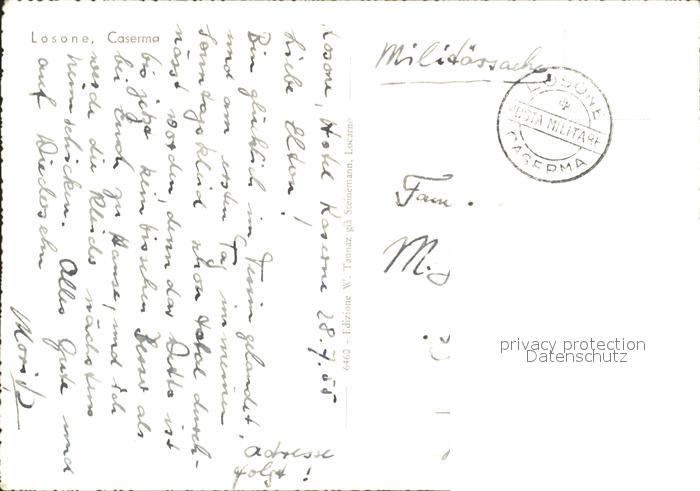 Losone, Caserma
Losone, Hotel Kaserne 28.7.55
Liebe Eltern!
Bin glücklich im Tessin gelandet
und am ersten Tag in meinem
Sonntagskleid schon total durch-
nässt worden, denn das Wetter ist
bis jetzt kein bisschen besser als
bei Euch zu Hause, und ich
werde die Kleider nächstens
heimschicken. Alles Gute und
auf Wiedersehn
Moritz
Adresse
folgt!
6460 - Edizione W. Tannaz già Steinemann, Locarno
Militärsache
LOSONE
POSTA MILITARE
CASERMA
Fam.
privacy protection
Datenschutz